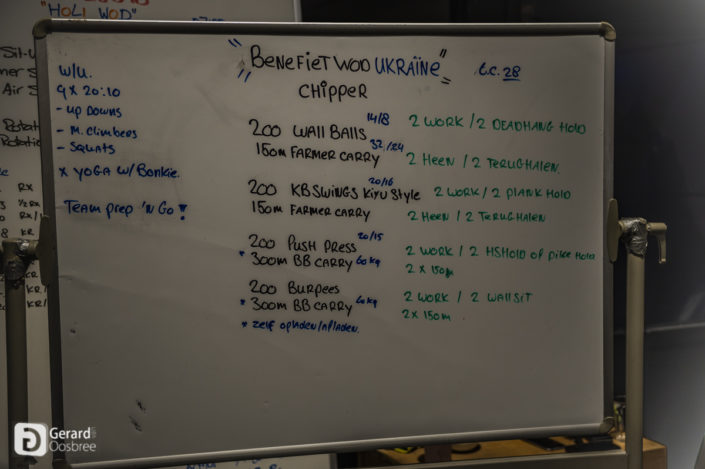 "HOLI WOD"
Sit-U
Air S
RX
½ RX
RX/
KR
KR/
KR/
"BENEFIET WOD UKRAÏNE"
t.c. 28
CHIPPER
W/U.
9 x 20:10
- UP DOWNS
- M. CLIMBERS
- SQUATS
x YOGA W/ Bonkie.
TEAM PREP 'N GO!
14/8
200 WALL BALLS 2 WORK / 2 DEADHANG HOLD
32/24
150m FARMER CARRY 2 HEEN / 2 TERUGHALEN.
20/16
200 KB SWINGS KIRU STYLE 2 WORK / 2 PLANK HOLD
150m FARMER CARRY 2 HEEN / 2 TERUGHALEN
20/15
200 PUSH PRESS 2 WORK / 2 HSHOLD of pike HOLD
* 300m BB CARRY 60kg 2 x 150m
200 BURPEES 2 WORK / 2 WALLSIT
* 300m BB CARRY 60kg 2x 150m.
* zelf opladen/afladen.
Gerard
Oosbree